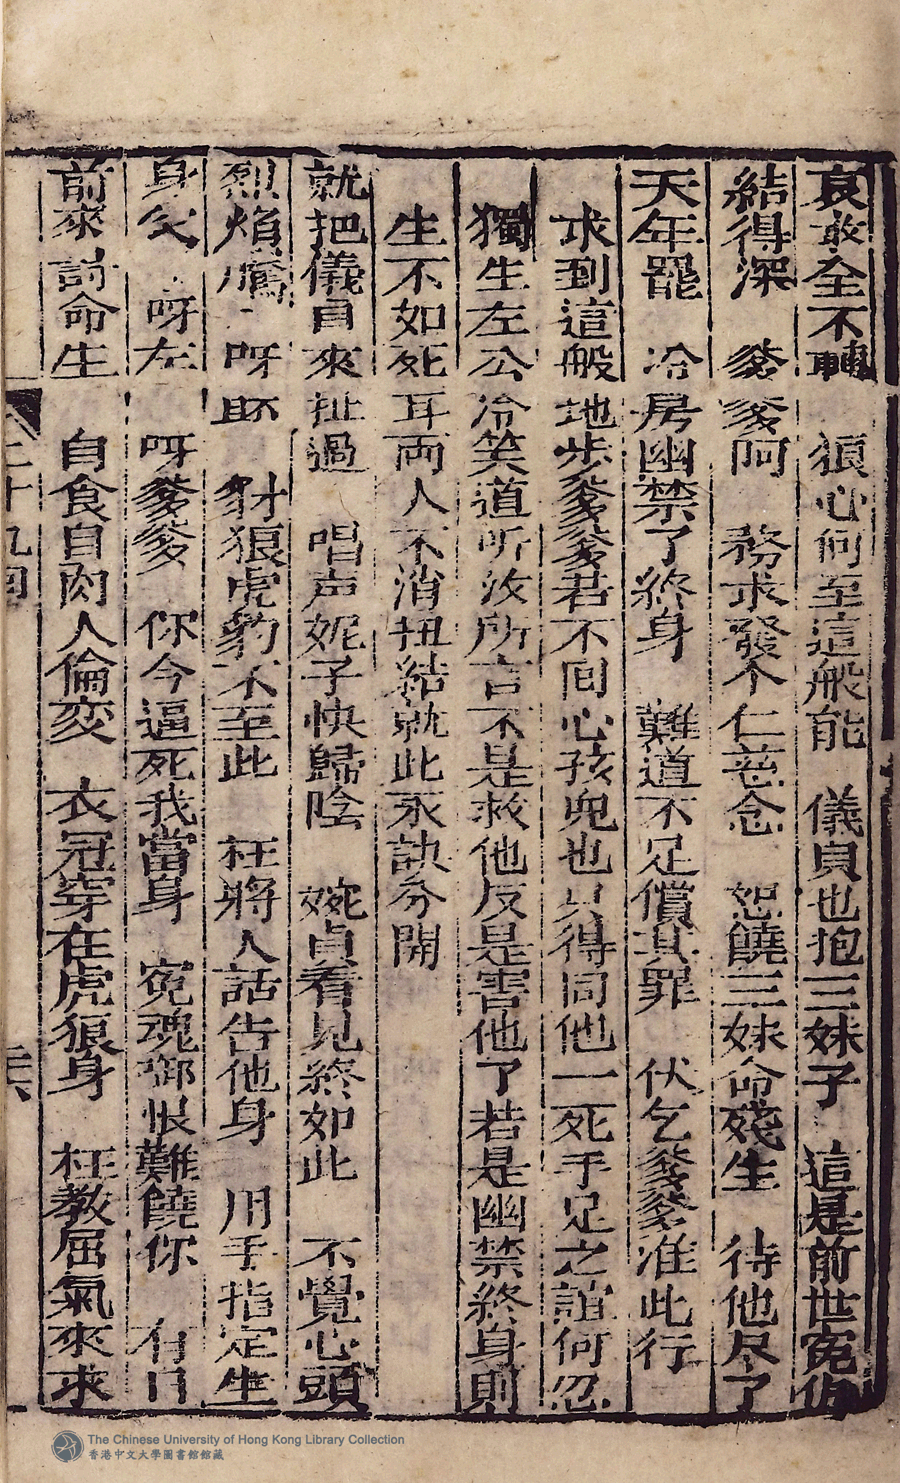 哀敢全不轉 狼心何至這般能 儀貞也抱三妹子 這是前世冤仇
結得深 爹爹阿 務求發个仁慈念 恕饒三妹命殘生 待他尽了
天年罷 冷房幽禁了終身 難道不足償其罪 伏乞爹爹准此行
求到這般地步爹爹若不囘心孩兒也只得同他一死手足之誼何忍
獨生左公冷笑道听汝所言不是救他反是害他了若是幽禁終身則
生不如死耳両人不消扭結就此永訣分開
就把儀貞來扯過 唱声妮子快歸陰 婉貞看見終如此 不覺心頭
烈焰騰 呀 豺狼虎豹不至此 枉將人話告他身 用手指定生
身父 呀左 呀爹爹 你今逼死我當身 冤魂啣恨難饒你 有日
前來討命生 自食自肉人倫变 衣冠穿在虎狼身 枉教屈氣來求
二十九回
The Chinese University of Hong Kong Library Collection
香港中文大學圖書館館藏